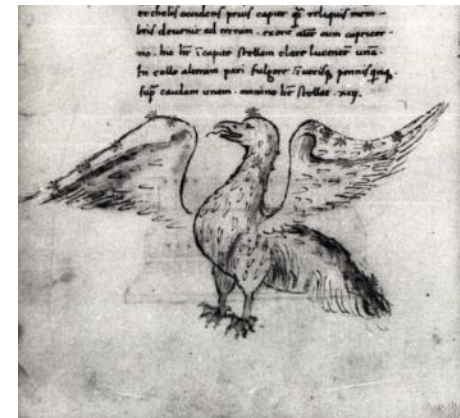 et chelis occidens prius caput qz reliquis mem-
bris devenit ad terram. exorit aut cum capricor-
no. hic ht i capite stellam clare lucentem unā.
In collo alteram pari fulgore i utrisqz pennis qnqz.
sup caudam unam. omnino ht stellas